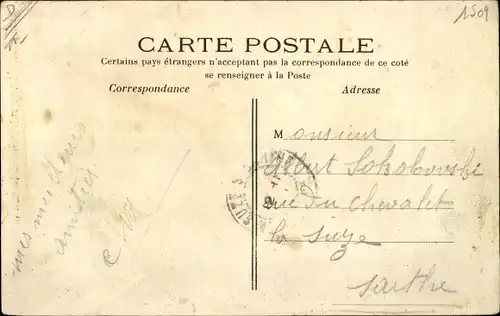 D
1509
CARTE POSTALE
Certains pays étrangers n'acceptant pas la correspondance de ce coté
se renseigner à la Poste
Correspondance
Adresse
mes meilleures
amitiés
Monsieur
Albert Sokolowski
rue du Chevalet
la Suze
Sarthe